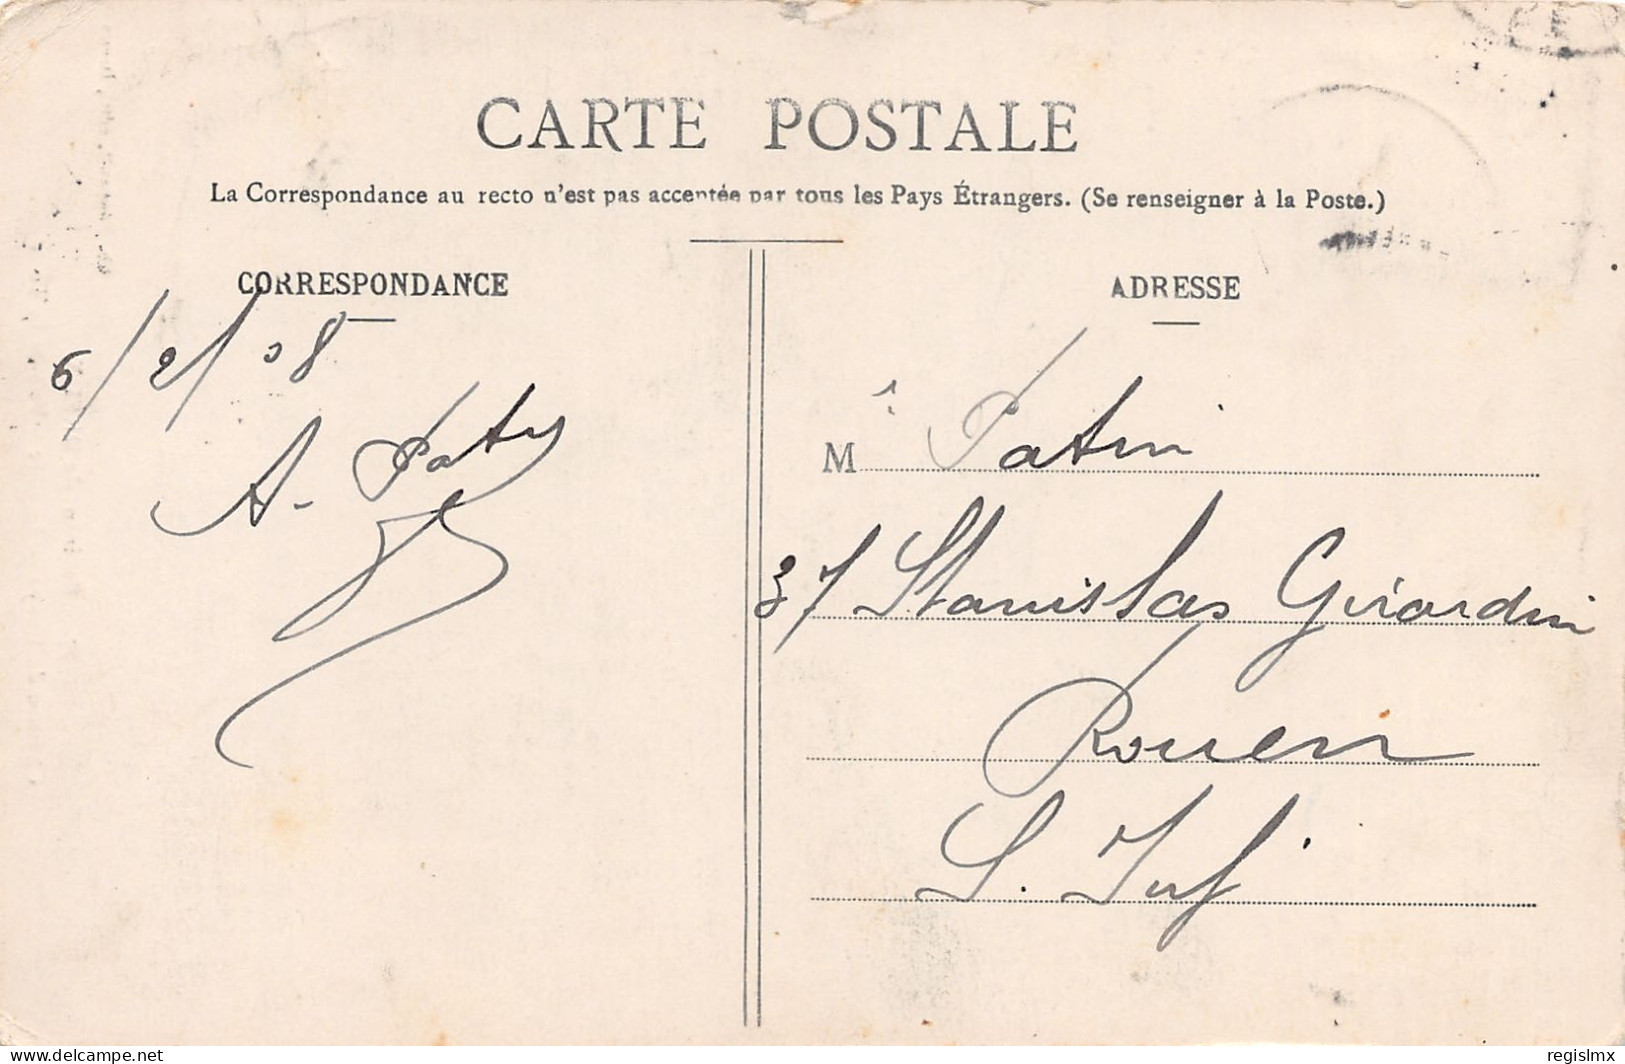 CARTE POSTALE
La Correspondance au recto n'est pas acceptée par tous les Pays Étrangers. (Se renseigner à la Poste.)
CORRESPONDANCE
6/2/08
A. Paty
ADRESSE
M Patin
37 Stanislas Girardin
Rouen
S. Inf
delcampe.net
regislmx